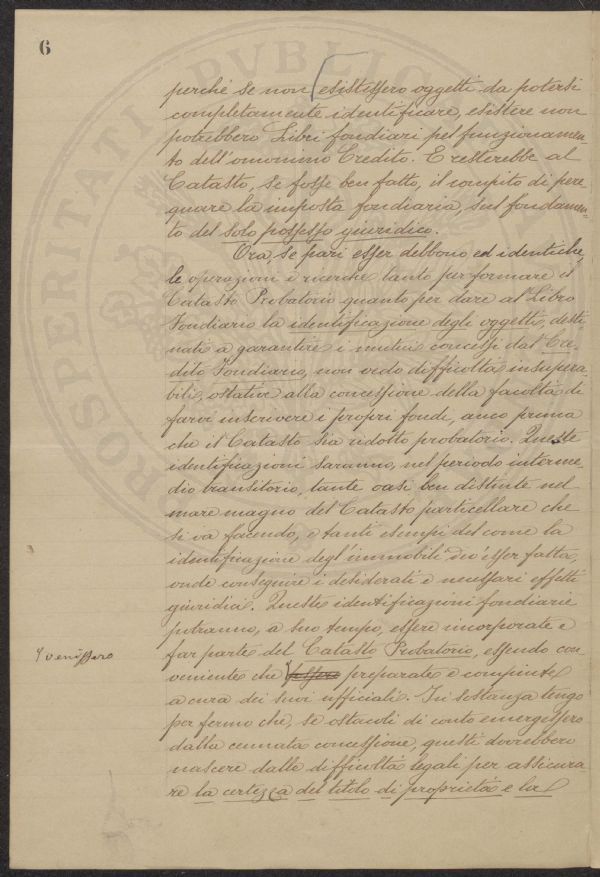 6
perchè se non esistessero oggetti da potersi
completamente identificare, esistere non
potrebbero Libri fondiari pel funzionamen-
to dell'omonimo Credito. E resterebbe al
Catasto, se fosse ben fatto, il compito di pere
quare la imposta fondiaria, sul fondamen-
to del solo possesso giuridico.
Ora, se pari esser debbono ed identiche,
le operazioni e ricerche tanto per formare il
Catasto Probatorio quanto per dare al Libro
Fondiario la identificazione degli oggetti, desti
nati a garantire i mutui concessi dal Cre-
dito Fondiario, non vedo difficoltà insupera-
bili, ostative alla concessione della facoltà di
farvi inscrivere i propri fondi, anco prima
che il Catasto sia ridotto probatorio. Queste
identificazioni saranno, nel periodo interme-
dio transitorio, tante oasi ben distinte nel
mare magno del Catasto particellare che
si va facendo, e tanti esempi del come la
identificazione degl'immobili dev'esser fatta,
onde conseguire i desiderati e necessari effetti
giuridici. Queste identificazioni fondiarie
potranno, a suo tempo, essere incorporate e
far parte del Catasto Probatorio, essendo con-
veniente che fossero preparate e compiute
venissero
a cura dei suoi ufficiali. In sostanza tengo
per fermo che, se ostacoli di conto emergessero
dalla cennata concessione, questi dovrebbero
nascere dalle difficoltà legali per assicura-
re la certezza del titolo di proprietà e la
PROSPERITATI PVBLICAE